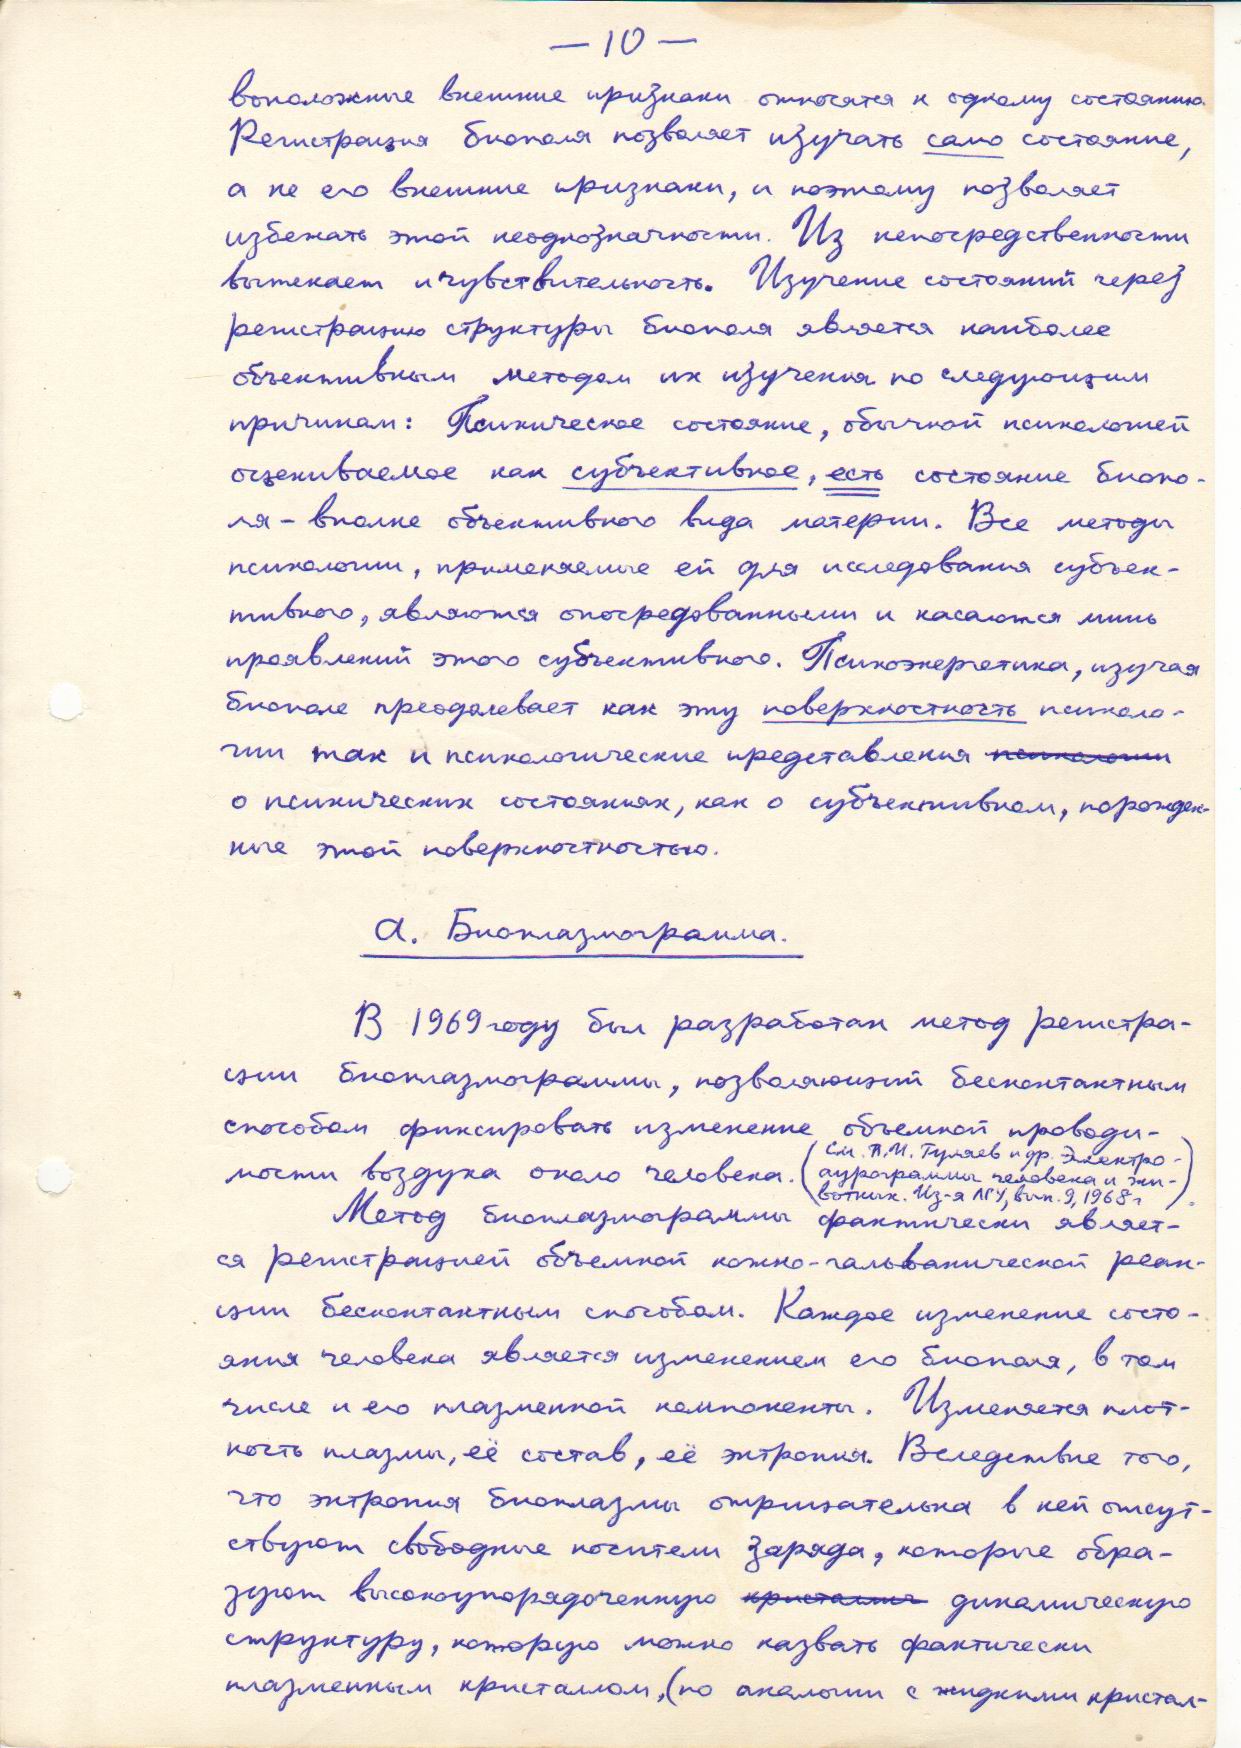 — 10 —
воположные внешние признаки относятся к одному состоянию.
Регистрация биополя позволяет изучать само состояние,
а не его внешние признаки, и поэтому позволяет
избежать этой неоднозначности. Из непосредственности
вытекает и чувствительность. Изучение состояний через
регистрацию структуры биополя является наиболее
объективным методом их изучения по следующим
причинам: Психическое состояние, обычной психологией
оцениваемое как субъективное, есть состояние биопо-
ля – вполне объективного вида материи. Все методы
психологии, применяемые ей для исследования субъек-
тивного, являются опосредованными и касаются лишь
проявлений этого субъективного. Психоэнергетика, изучая
биополе преодолевает как эту поверхностность психоло-
гии так и психологические представления психологии
о психических состояниях, как о субъективном, порожден-
ные этой поверхностностью.
а. Биоплазмограмма.
В 1969 году был разработан метод регистра-
ции биоплазмограммы, позволяющий бесконтактным
способом фиксировать изменение объемной проводи-
мости воздуха около человека. (см. П.И. Гуляев и др. Электро-
аурограммы человека и жи-
вотных. Из-я ЛГУ, вып. 9, 1968 г.)
Метод биоплазмограммы фактически являет-
ся регистрацией объемной кожно-гальванической реак-
ции бесконтактным способом. Каждое изменение состо-
яния человека является изменением его биополя, в том
числе и его плазменной компоненты. Изменяется плот-
ность плазмы, её состав, её энтропия. Вследствие того,
что энтропия биоплазмы отрицательна в ней отсут-
ствуют свободные носители заряда, которые обра-
зуют высокоупорядоченную кристаллич динамическую
структуру, которую можно назвать фактически
плазменным кристаллом, (по аналогии с жидкими кристал-